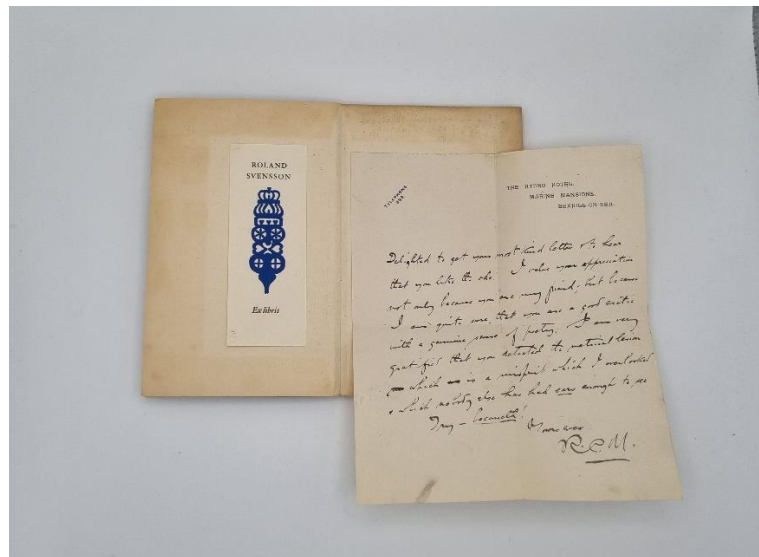 ROLAND
SVENSSON
Ex libris
TELEPHONE
THE RYING HOTEL,
MARINE MANSIONS,
BEXHILL-ON-SEA.
Delighted to get your most kind letter & to hear
that you like the ode. I value your appreciation
not only because you are my friend, but because
I am quite sure that you are a good critic
with a genuine sense of poetry. I am very
gratified that you detected the metrical
which is a misprint which I overlooked
& which nobody else has had ears enough to see
Yours ever
R.C.M.